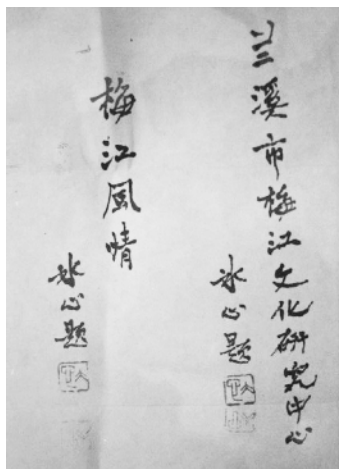 兰溪市梅江文化研究中心
冰心题
梅江風情
冰心题